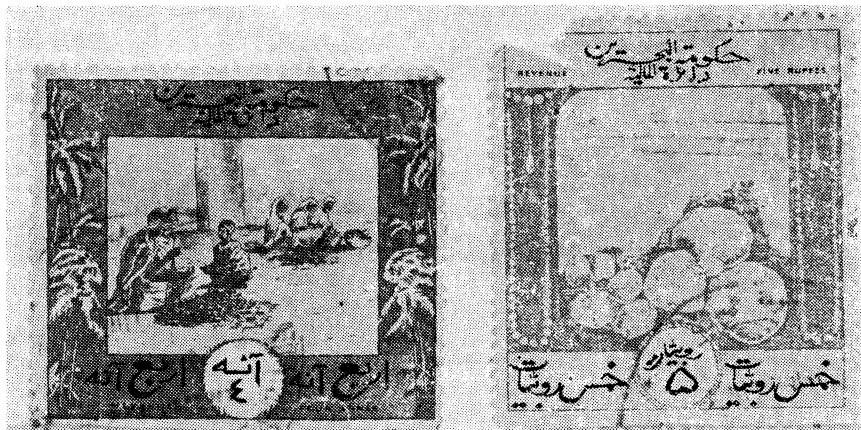 حكومة البحرين
دائرة المالية
اربع آنه
آنه
٤
اربع آنه
FOUR ANNAS
حكومة البحرين
دائرة المالية
REVENUE
FIVE RUPEES
خمس روبيات
روبيات
٥
خمس روبيات